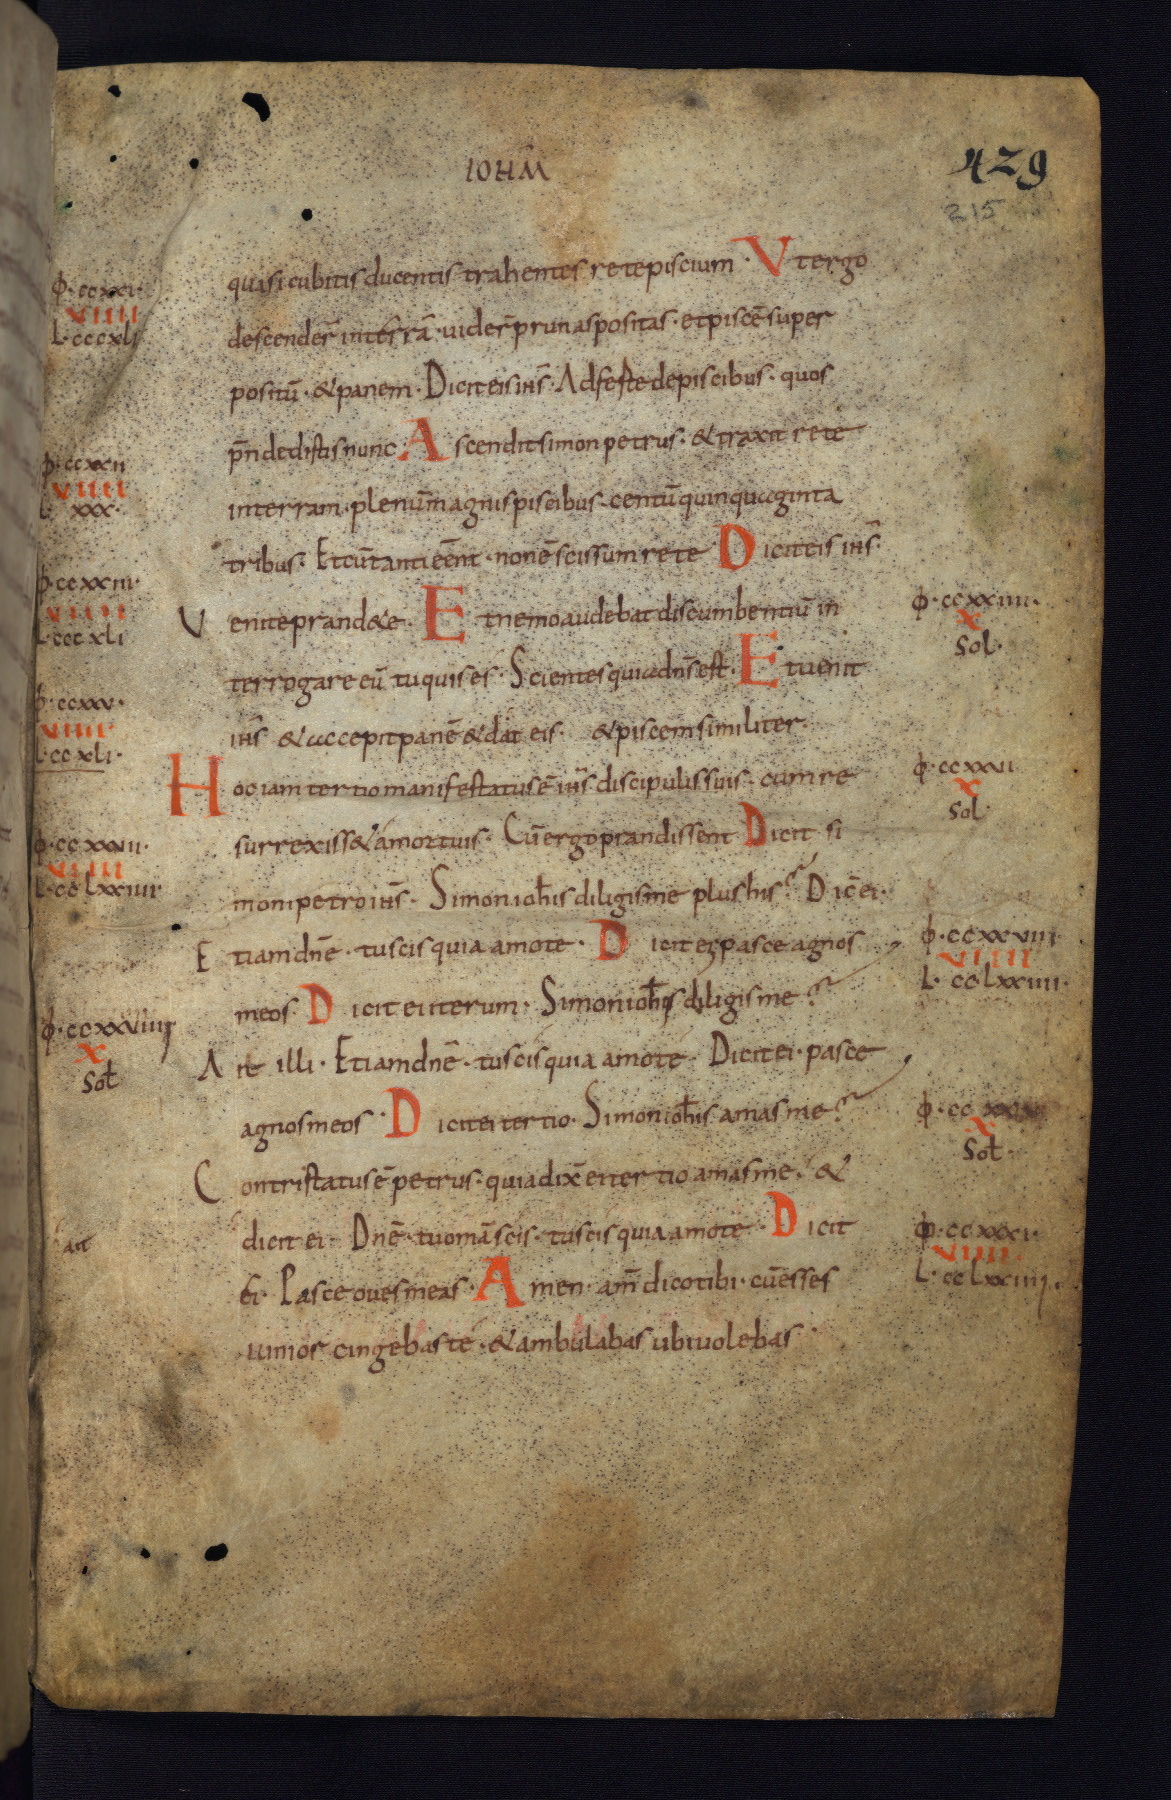 IOHM̅
429
215
quasi cubitis ducentis trahentes rete piscium · Vt ergo
descender̅ in terrā · uider̅ prunas positas · et piscē super
positū · & panem · Dicit eis ih̅s · Adferte de piscibus · quos
pn̅didistis nunc · Ascendit simon petrus · & traxit rete
in terram · plenum̅ magnis piscibus · centū quinquaginta
tribus · Et cū tanti eēnt · non ē scissum rete Dicit eis ih̅s ·
Venite prand&e · Et nemo audebat discumbentiū in
terrogare eū tu quis es · Scientes quia dn̅s est · Et uenit
ih̅s & accepit panē & dat eis · & piscem similiter ·
Hoc iam tertio manifestatus ē ih̅s discipulis suis · cum re
surrexiss& a mortuis · Cū ergo prandissent Dicit si
moni petro ih̅s · Simon ioh̅is diligis me plus his? Dic̅ ei ·
Etiam dn̅e · tu scis quia amo te · Dicit ei pasce agnos
meos · Dicit ei iterum · Simon ioh̅is diligis me?
Ait illi · Etiam dn̅e · tu scis quia amo te · Dicit ei · pasce
agnos meos · Dicit ei tertio · Simon ioh̅is amas me?
Contristatus ē petrus · quia dix̅ ei tertio amas me · &
dicit ei · Dn̅e · tu om̅ā scis · tu scis quia amo te · Dicit
ei · Pasce oues meas · Amen · am̅ dico tibi · cū esses
iunior cingebas te · & ambulabas ubi uolebas ·
φ · ccxxi ·
VIIII
L · cccxli
φ · ccxxii
VIIII
L xxx ·
φ · ccxxiii ·
VIIII
L · cccxli
φ · ccxxv ·
VIIII
L · ccxli ·
φ · ccxxvii ·
VIIII
L · cclxxiiii
φ · ccxxviiii
X
Sol̅
ait
φ · ccxxiiii ·
X
Sol ·
φ · ccxxvi
X
Sol ·
φ · ccxxviii
VIIII
L · cclxxiiii ·
φ · ccxxx
X
Sol̅ ·
φ · ccxxxi ·
VIIII
L · cclxxiiii ·